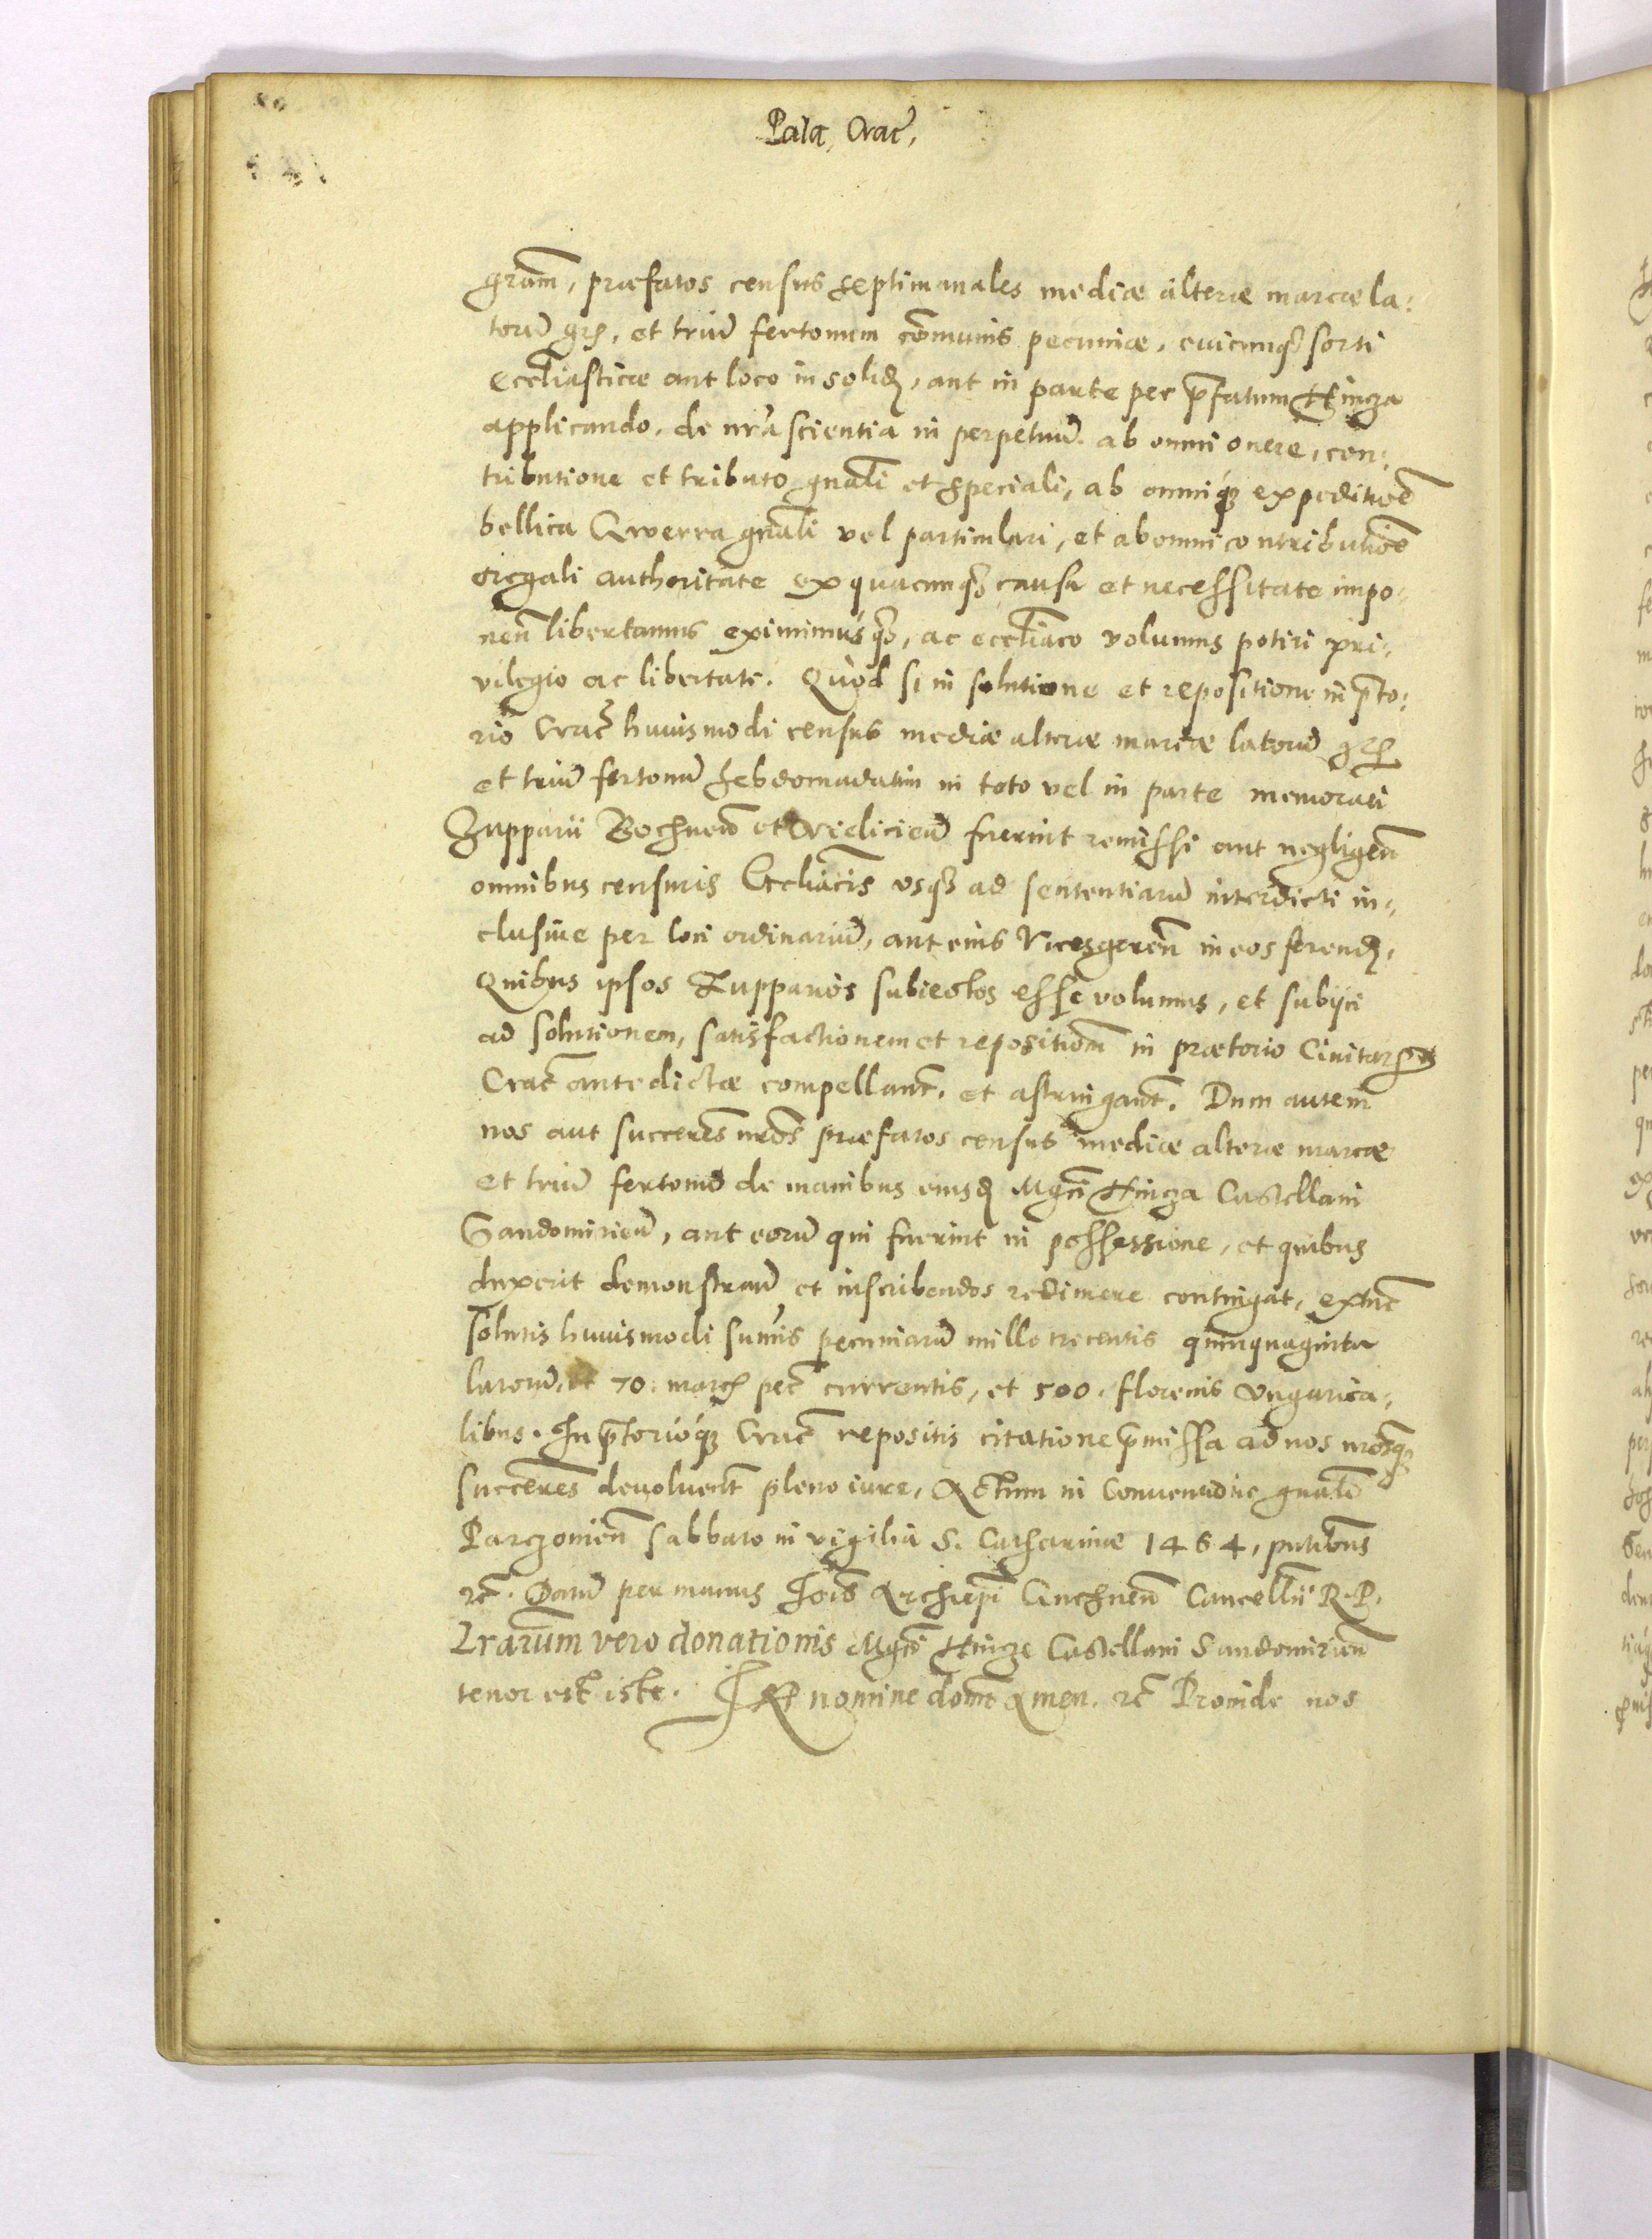 Pala. Crac.
gram, præfatos census septimanales mediæ alteræ marcæ la-
torũ gr., et triũ fertonum cõmunis pecuniæ, cuicunq3 sorti
eccl̃iasticæ aut loco in solid., aut in parte per p̃fatum Hincza
applicando, de nr̃a scientia in perpetuũ ab omni onere, con-
tributione et tributo gñali et speciali, ab omniq3 expeditiõe
bellica Gwerra gñali vel particulari, et ab omni contributiõe
regali authoritate ex quacunq3 causa et necessitate impo-
neñ libertamus eximimusq3, ac eccl̃iaco volumus potiri pri-
vilegio ac libertate. Quòd si in solutione et repositione in p̃to-
rio Crac̃ huiusmodi census mediæ alteræ marcæ latorũ gr.
et triũ fertonũ hebdomadatim in toto vel in parte memorati
Zupparii Bochneñ et Vieliciеñ fuerint remissi aut negligeñ
omnibus censuris Eccl̃iacis usq3 ad sententiarũ interdicti in-
clusiue per loci ordinariũ, aut eius Vicesgereñ in eos ferend.,
Quibus ipsos Zupparios subiectos esse volumus, et subijci
ad solutionem, satisfactionem et repositiom̃ in prætorio Ciuitatis
Crac̃ antedictæ compellant̃, et astringant̃. Dum autem
nos aut succeres̃ nr̃os præfatos census mediæ alteræ marcæ
et triũ fertonũ de manibus eiusd. Mgc̃i Hincza Castellani
Sandomirieñ, aut eorũ qui fuerint in possessione, et quibus
duxerit demonstrañ et inscribendos redimere contingat, extunc
solutis huiusmodi sum̃is pecuniarũ mille trecentis quinquaginta
latorũ, et 70. marc. pec̃ currentis, et 500. florenis Ungarica-
libus. In p̃torioq3 Crac̃ repositis citatione p̃missa ad nos nr̃osq3
succeres̃ deuoluent̃ pleno iure, Actum in Conuentione gñali
Parczouieñ sabbato in vigilia S. Catharinæ 1464, pñtibus
etc̃. Datũ per manus Iois̃ Archiep̃i Gnezneñ Cancellii R. P.
Lr̃arum vero donationis Mgc̃i Hincze Castellani Sandomirieñ
tenor est iste. IN nomine domĩ Amen. etc̃ Proinde nos